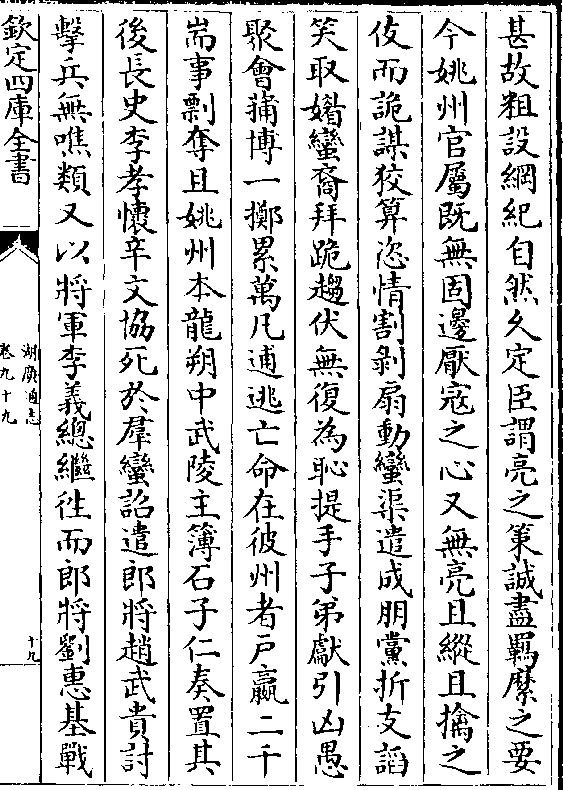 甚故粗設綱紀自然久定臣謂亮之策誠盡羈縻之要
今姚州官屬既無固邊厭寇之心又無亮且縱且擒之
伎而詭謀狡算恣情割剝扇動蠻渠遣成朋黨折支諂
笑取媚蠻裔拜跪趨伏無復為恥提手子弟獻引凶愚
聚會蒱博一擲累萬凡逋逃亡命在彼州者戶贏二千
耑事剽奪且姚州本龍朔中武陵主簿石子仁奏置其
後長史李孝懷辛文協死於羣蠻詔遣郎將趙武貴討
擊兵無噍類又以將軍李義總繼徃而郎將劉惠基戰
欽定四庫全書
湖廣通志
卷九十九
十九